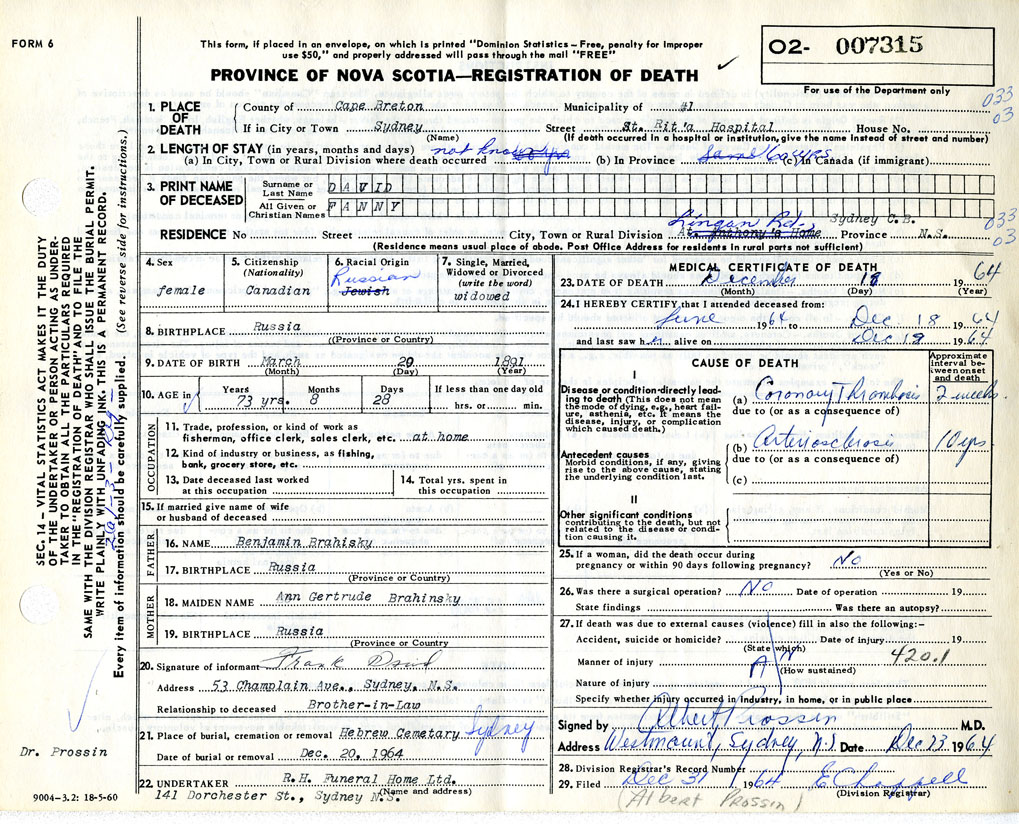 FORM 6
This form, if placed in an envelope, on which is printed "Dominion Statistics – Free, penalty for improper
use $50," and properly addressed will pass through the mail "FREE"
PROVINCE OF NOVA SCOTIA—REGISTRATION OF DEATH
02- 007315
For use of the Department only
033
03
SEC. 14 – VITAL STATISTICS ACT MAKES IT THE DUTY
OF THE UNDERTAKER OR PERSON ACTING AS UNDER-
TAKER TO OBTAIN ALL THE PARTICULARS REQUIRED
IN THE "REGISTRATION OF DEATH" AND TO FILE THE
SAME WITH THE DIVISION REGISTRAR WHO SHALL ISSUE THE BURIAL PERMIT.
WRITE PLAINLY WITH UNFADING INK. THIS IS A PERMANENT RECORD.
Every item of information should be carefully supplied. (See reverse side for instructions.)
1. PLACE OF DEATH
County of Cape Breton Municipality of #1
If in City or Town Sydney Street St. Rit'a Hospital House No.
(Name) (If death occurred in a hospital or institution, give the name instead of street and number)
2. LENGTH OF STAY (in years, months and days)
(a) In City, Town or Rural Division where death occurred not known (b) In Province (c) In Canada (if immigrant)
3. PRINT NAME OF DECEASED
Surname or Last Name DAVID
All Given or Christian Names FANNY
033
03
RESIDENCE No Street City, Town or Rural Division Lingan Rd. St. Anthony's Home Sydney C.B. Province N.S.
(Residence means usual place of abode. Post Office Address for residents in rural parts not sufficient)
4. Sex
female
5. Citizenship
(Nationality)
Canadian
6. Racial Origin
Russian
Jewish
7. Single, Married,
Widowed or Divorced
(write the word)
widowed
8. BIRTHPLACE Russia
((Province or Country)
9. DATE OF BIRTH March 20 1891
(Month) (Day) (Year)
10. AGE in
Years Months Days If less than one day old
73 yrs. 8 28 hrs. or min.
OCCUPATION
11. Trade, profession, or kind of work as
fisherman, office clerk, sales clerk, etc. at home
12. Kind of industry or business, as fishing,
bank, grocery store, etc.
13. Date deceased last worked
at this occupation
14. Total yrs. spent in
this occupation
15. If married give name of wife
or husband of deceased
FATHER
16. NAME Benjamin Brahisky
17. BIRTHPLACE Russia
(Province or Country)
MOTHER
18. MAIDEN NAME Ann Gertrude Brahinsky
19. BIRTHPLACE Russia
(Province or Country
20. Signature of informant Frank David
Address 53 Champlain Ave., Sydney, N.S.
Relationship to deceased Brother-in-Law
21. Place of burial, cremation or removal Hebrew Cemetary Sydney
Date of burial or removal Dec. 20, 1964
22. UNDERTAKER R.H. Funeral Home Ltd.
141 Dorchester St., Sydney N.S. (Name and address)
Dr. Prossin
9004-3.2: 18-5-60
MEDICAL CERTIFICATE OF DEATH
23. DATE OF DEATH December 18 1964
(Month) (Day) (Year)
24. I HEREBY CERTIFY, that I attended deceased from:
June 1964 to Dec 18 1964
and last saw her alive on Dec 18 1964
CAUSE OF DEATH
Approximate
interval be-
tween onset
and death
I
Disease or condition directly lead-
ing to death (This does not mean
the mode of dying, e.g., heart fail-
ure, asthenia, etc. It means the
disease, injury, or complication
which caused death.)
(a) Coronary Thrombosis 2 weeks
due to (or as a consequence of)
Antecedent causes
Morbid conditions, if any, giving
rise to the above cause, stating
the underlying condition last.
(b) Arteriosclerosis 10 yrs
due to (or as a consequence of)
(c)
II
Other significant conditions
contributing to the death, but not
related to the disease or condi-
tion causing it.
25. If a woman, did the death occur during
pregnancy or within 90 days following pregnancy? No
(Yes or No)
26. Was there a surgical operation? No Date of operation 19
State findings Was there an autopsy?
27. If death was due to external causes (violence) fill in also the following:–
Accident, suicide or homicide? Date of injury 19
(State which)
Manner of injury 420.1
(How sustained)
Nature of injury
Specify whether injury occurred in industry, in home, or in public place
Signed by Albert Prossin M.D.
Address Westmount, Sydney, N.S. Date Dec 23 1964
28. Division Registrar's Record Number
29. Filed Dec 31 1964 E Chappell
(Division Registrar)
(Albert Prossin)